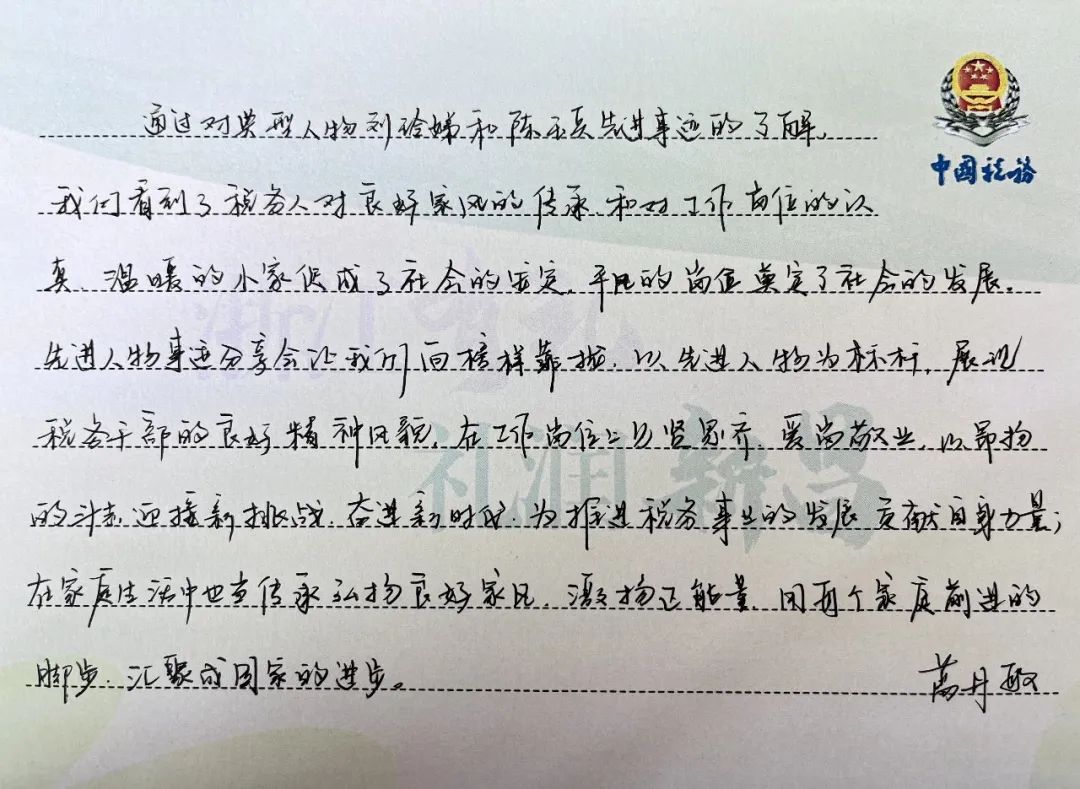 通过对典型人物刘玲娣和陈玉兵先进事迹的了解,
中国税务
我们看到了税务人对良好家风的传承、和对工作岗位的认
真、温暖的小家促成了社会的安定,平凡的岗位奠定了社会的发展。
先进人物事迹分享会让我们向榜样靠拢,以先进人物为标杆,展现
税务干部的良好精神风貌,在工作岗位上见贤思齐、爱岗敬业,以昂扬
的斗志迎接新挑战,奋进新时代,为推进税务事业的发展贡献自身力量;
在家庭生活中也当传承弘扬良好家风,激扬正能量,用每个家庭前进的
脚步,汇聚成国家的进步。
丹敏
礼润